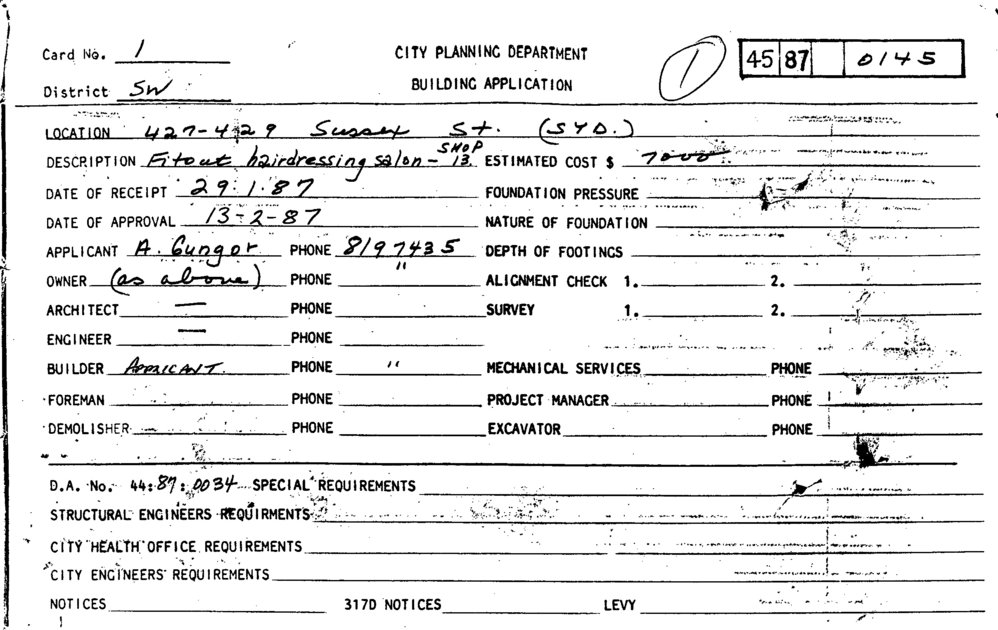 Card No. 1 CITY PLANNING DEPARTMENT 1 45 87 0145
District SW BUILDING APPLICATION
LOCATION 427-429 Sussex St. (SYD.)
DESCRIPTION Fitout hairdressing salon - SHOP 13. ESTIMATED COST $ 7000
DATE OF RECEIPT 29.1.87 FOUNDATION PRESSURE
DATE OF APPROVAL 13-2-87 NATURE OF FOUNDATION
APPLICANT A. Gungor PHONE 8197435 DEPTH OF FOOTINGS
OWNER (as above) PHONE " ALIGNMENT CHECK 1. 2.
ARCHITECT — PHONE SURVEY 1. 2.
ENGINEER — PHONE
BUILDER APPLICANT. PHONE " MECHANICAL SERVICES PHONE
FOREMAN PHONE PROJECT MANAGER PHONE
DEMOLISHER PHONE EXCAVATOR PHONE
D.A. No. 44:87:0034 SPECIAL REQUIREMENTS
STRUCTURAL ENGINEERS REQUIRMENTS
CITY HEALTH OFFICE REQUIREMENTS
CITY ENGINEERS REQUIREMENTS
NOTICES 317D NOTICES LEVY